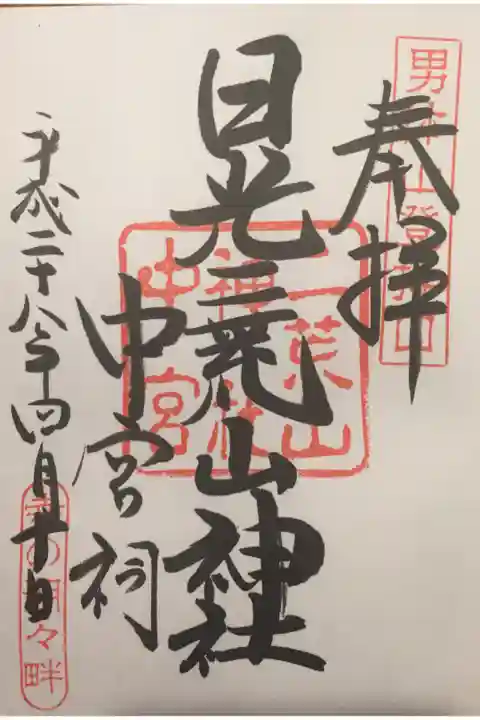 男体山登拝口
奉拝
日光二荒山神社
二荒山
神社
中宮
中宮祠
平成二十八年四月十日
幸の湖々畔